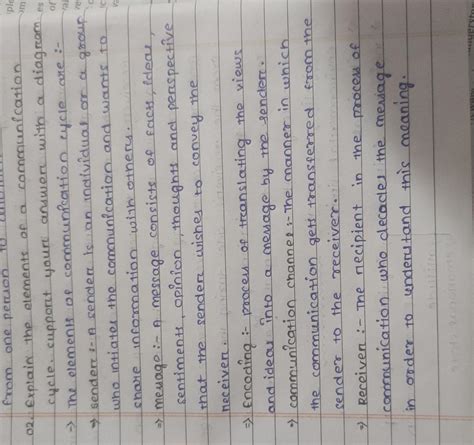 from one person to
02. Explain the elements of a communication
cycle. support your answer with a diagram.
⇒ The elements of communication cycle are :-
⇒ sender :- A sender is an individual or a group
who intiates the communication and wants to
share information with others.
⇒ message :- A message consists of facts, ideas,
sentiments, opinion, thoughts and perspective
that the sender wishes to convey the
receiver.
⇒ Encoding :- process of translating the views
and ideas into a message by the sender.
⇒ communication channel :- The manner in which
the communication gets transferred from the
sender to the receiver.
⇒ Receiver :- The recipient in the process of
communication who decades the message
in order to understand this meaning.